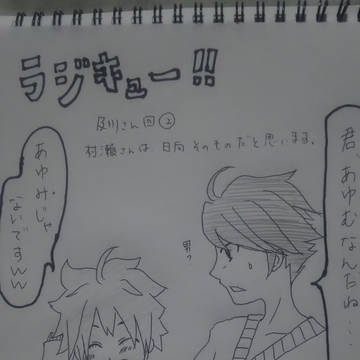 ラジキュー!!
及川さん回②
村瀬さんは、日向そのものだと思いまする。
君、あゆむなんだね……
男っ
あゆみじゃ
ないですww